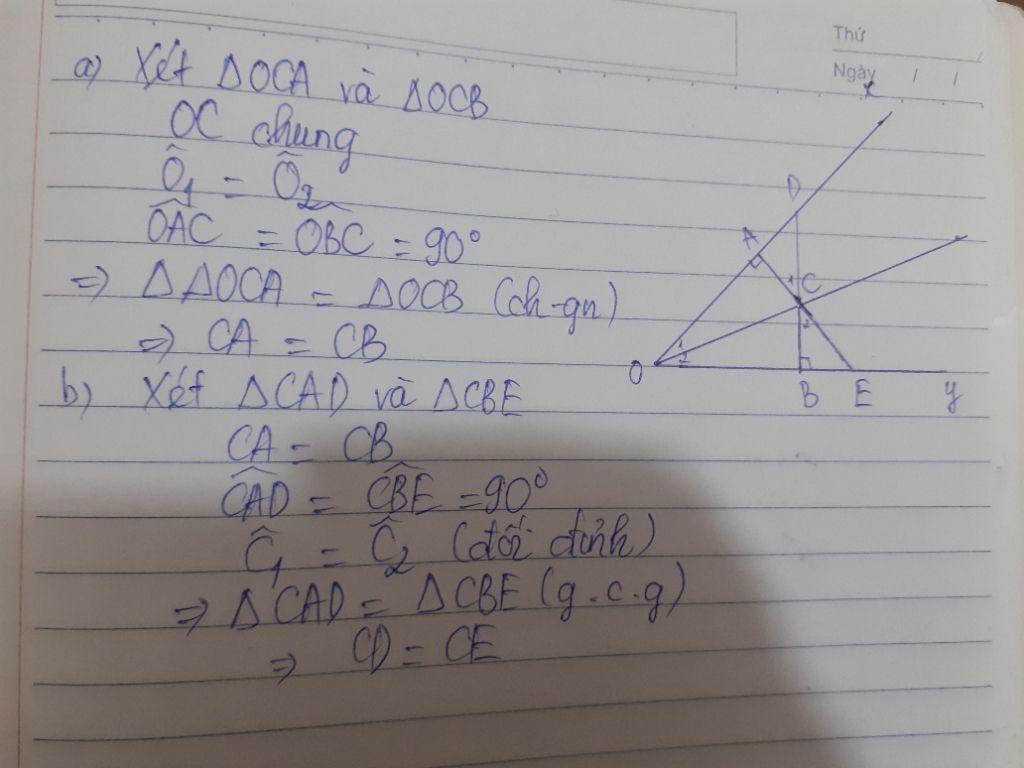 Thứ
Ngày / /
a) Xét ΔOCA và ΔOCB
OC chung
Ô₁ = Ô₂
\widehat{OAC} = \widehat{OBC} = 90°
=> ΔΔOCA = ΔOCB (ch-gn)
=> CA = CB
b) Xét ΔCAD và ΔCBE
CA = CB
\widehat{CAD} = \widehat{CBE} = 90°
Ĉ₁ = Ĉ₂ (đối đỉnh)
=> ΔCAD = ΔCBE (g.c.g)
=> CD = CE
x
D
A
1 C
2
1
O 2
B E y